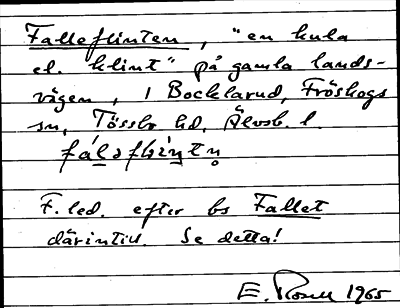 Falleflinten, "en kula
el. klint" på gamla lands-
vägen, i Bocklarud, Fröskogs
sn, Tössbo hd, Älvsb. l.
fálǝflìntn̥
F. led. efter bs Fallet
därintill. Se detta!
E. Rosell 1965